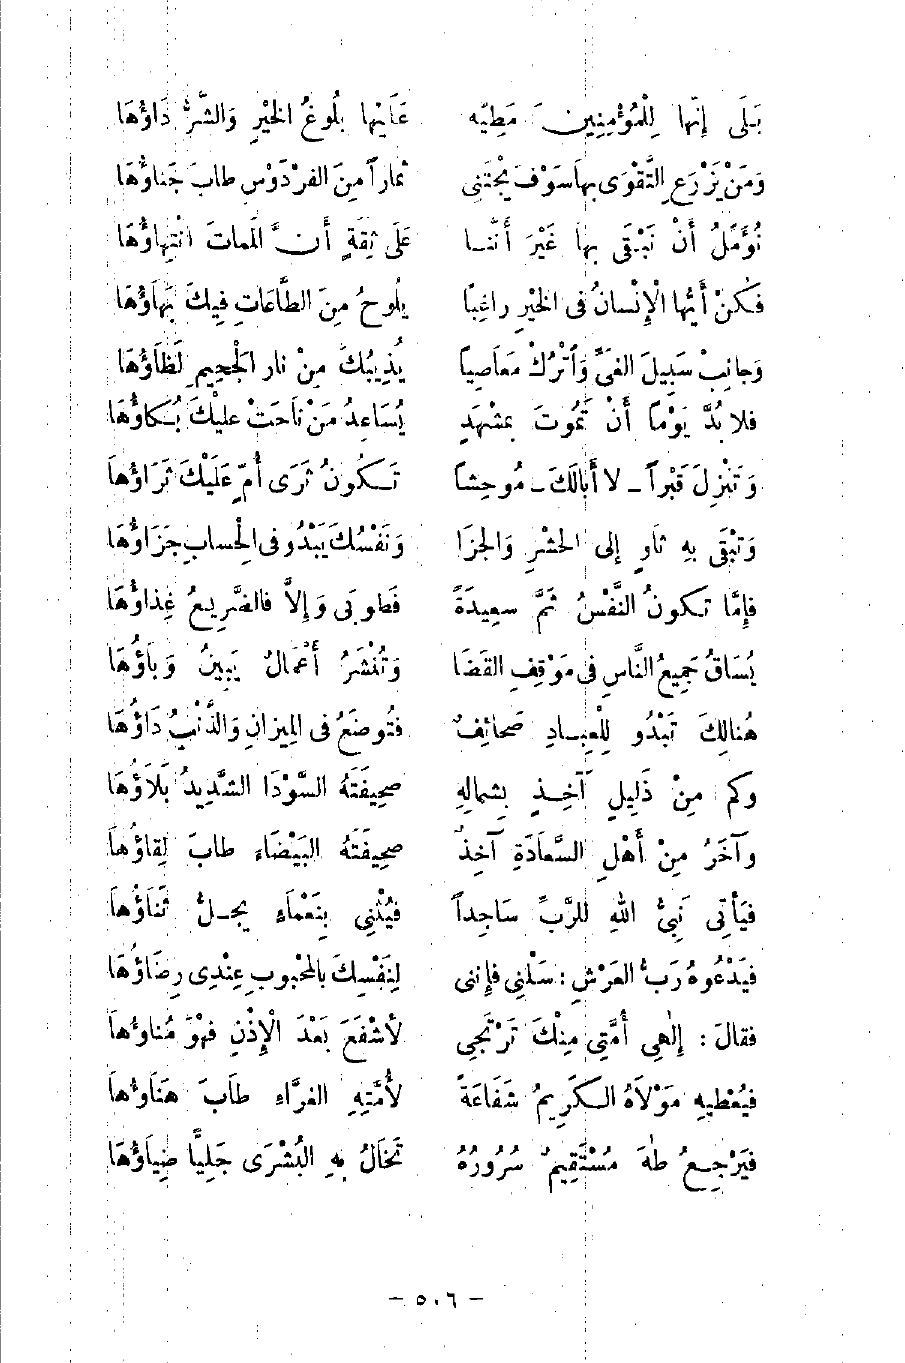 بَلَى إِنَّهَا لِلْمُؤْمِنِينَ مَطِيَّه عَلَيْهَا بُلُوغُ الخَيْرِ وَالشَّرُّ دَاؤُهَا
وَمَنْ يَزْرَعِ التَّقْوَى بِهَا سَوْفَ يَجْتَنِى ثِمَاراً مِنَ الفِرْدَوْسِ طابَ جَناؤُهَا
نُؤَمِّلُ أَنْ نَبْقَى بِهَا غَيْرَ أَنَّنا عَلَى ثِقَةٍ أَنَّ المَمَاتَ انْتِهَاؤُهَا
فَكُنْ أَيُّهَا الْإِنْسانُ فى الخَيْرِ راغِبًا يَلُوحُ مِنَ الطَّاعَاتِ فِيكَ بَهَاؤُهَا
وَجانِبْ سَبِيلَ الغَىِّ وَاُتْرُكْ مَعَاصِياً يُذِيبُكَ مِنْ نارِ الجَحِيمِ لَظَاؤُهَا
فلا بُدَّ يَوْمًا أَنْ تَمُوتَ بِمَشْهَدٍ يُسَاعِدُ مَنْ نَاحَتْ عليْكَ بُكاؤُهَا
وَتَنْزِلَ قَبْراً ــ لا أَبَالَكَ ــ مُوحِشاً تَكُونُ ثَرَى أُمٍّ عَلَيْكَ ثَرَاؤُهَا
وَتَبْقَى بِهِ ثاوٍ إلى الحَشْرِ وَالجَزَا وَنَفْسُكَ يَبْدُو فى الْحِسابِ جَزَاؤُهَا
فإِمَّا تَكونُ النَّفْسُ ثَمَّ سعِيدَةً فَطوبَى وَإِلاَّ فالضَّرِيعُ غِذاؤُهَا
يُسَاقُ جَمِيعُ النَّاسِ فى مَوْقِفِ القَضَا وَتُنْشَرُ أَعْمَالٌ يَبِينُ وَبَاؤُهَا
هُنالِكَ تَبْدُو لِلْعِبَادِ صَحائِفٌ فتُوضَعُ فى المِيزانِ وَالذَّنْبُ دَاؤُهَا
وكم مِنْ ذَلِيلٍ آخِذٍ بِشِمالِهِ صحِيفَتَهُ السَّوْدَا الشَّدِيدُ بَلَاؤُهَا
وآخَرُ مِنْ أَهْلِ السَّعَادَةِ آخِذٌ صحِيفَتَهُ البَيْضَاءَ طابَ لِقاؤُهَا
فَيَأْتِى نَبِىُّ اللهِ لِلرَّبِّ سَاجِداً فيُثْنِى بِنَعْمَاءٍ يَجِلُّ ثَنَاؤُهَا
فيَدْعُوهُ رَبُّ العَرْشِ : سَلْنِى فإِننى لِنَفْسِكَ بالمَحْبُوبِ عِنْدِى رِضَاؤُهَا
فقالَ : إِلٰهِى أُمَّتِى مِنْكَ تَرْتَجِى لأَشْفَعَ بَعْدَ الْإِذْنِ فهْوَ مُناوُهَا
فيُعْطِيهِ مَوْلَاهُ الكَرِيمُ شَفَاعَةً لأُمَّتِهِ الغَرَّاءِ طَابَ هَنَاوُهَا
فيَرْجِعُ طٰهَ مُسْتَقِيمٌ سُرُورُهُ تَخَالُ بِهِ البُشْرَى جَلِيًّا ضِيَاؤُهَا
– ٥٠٦ –